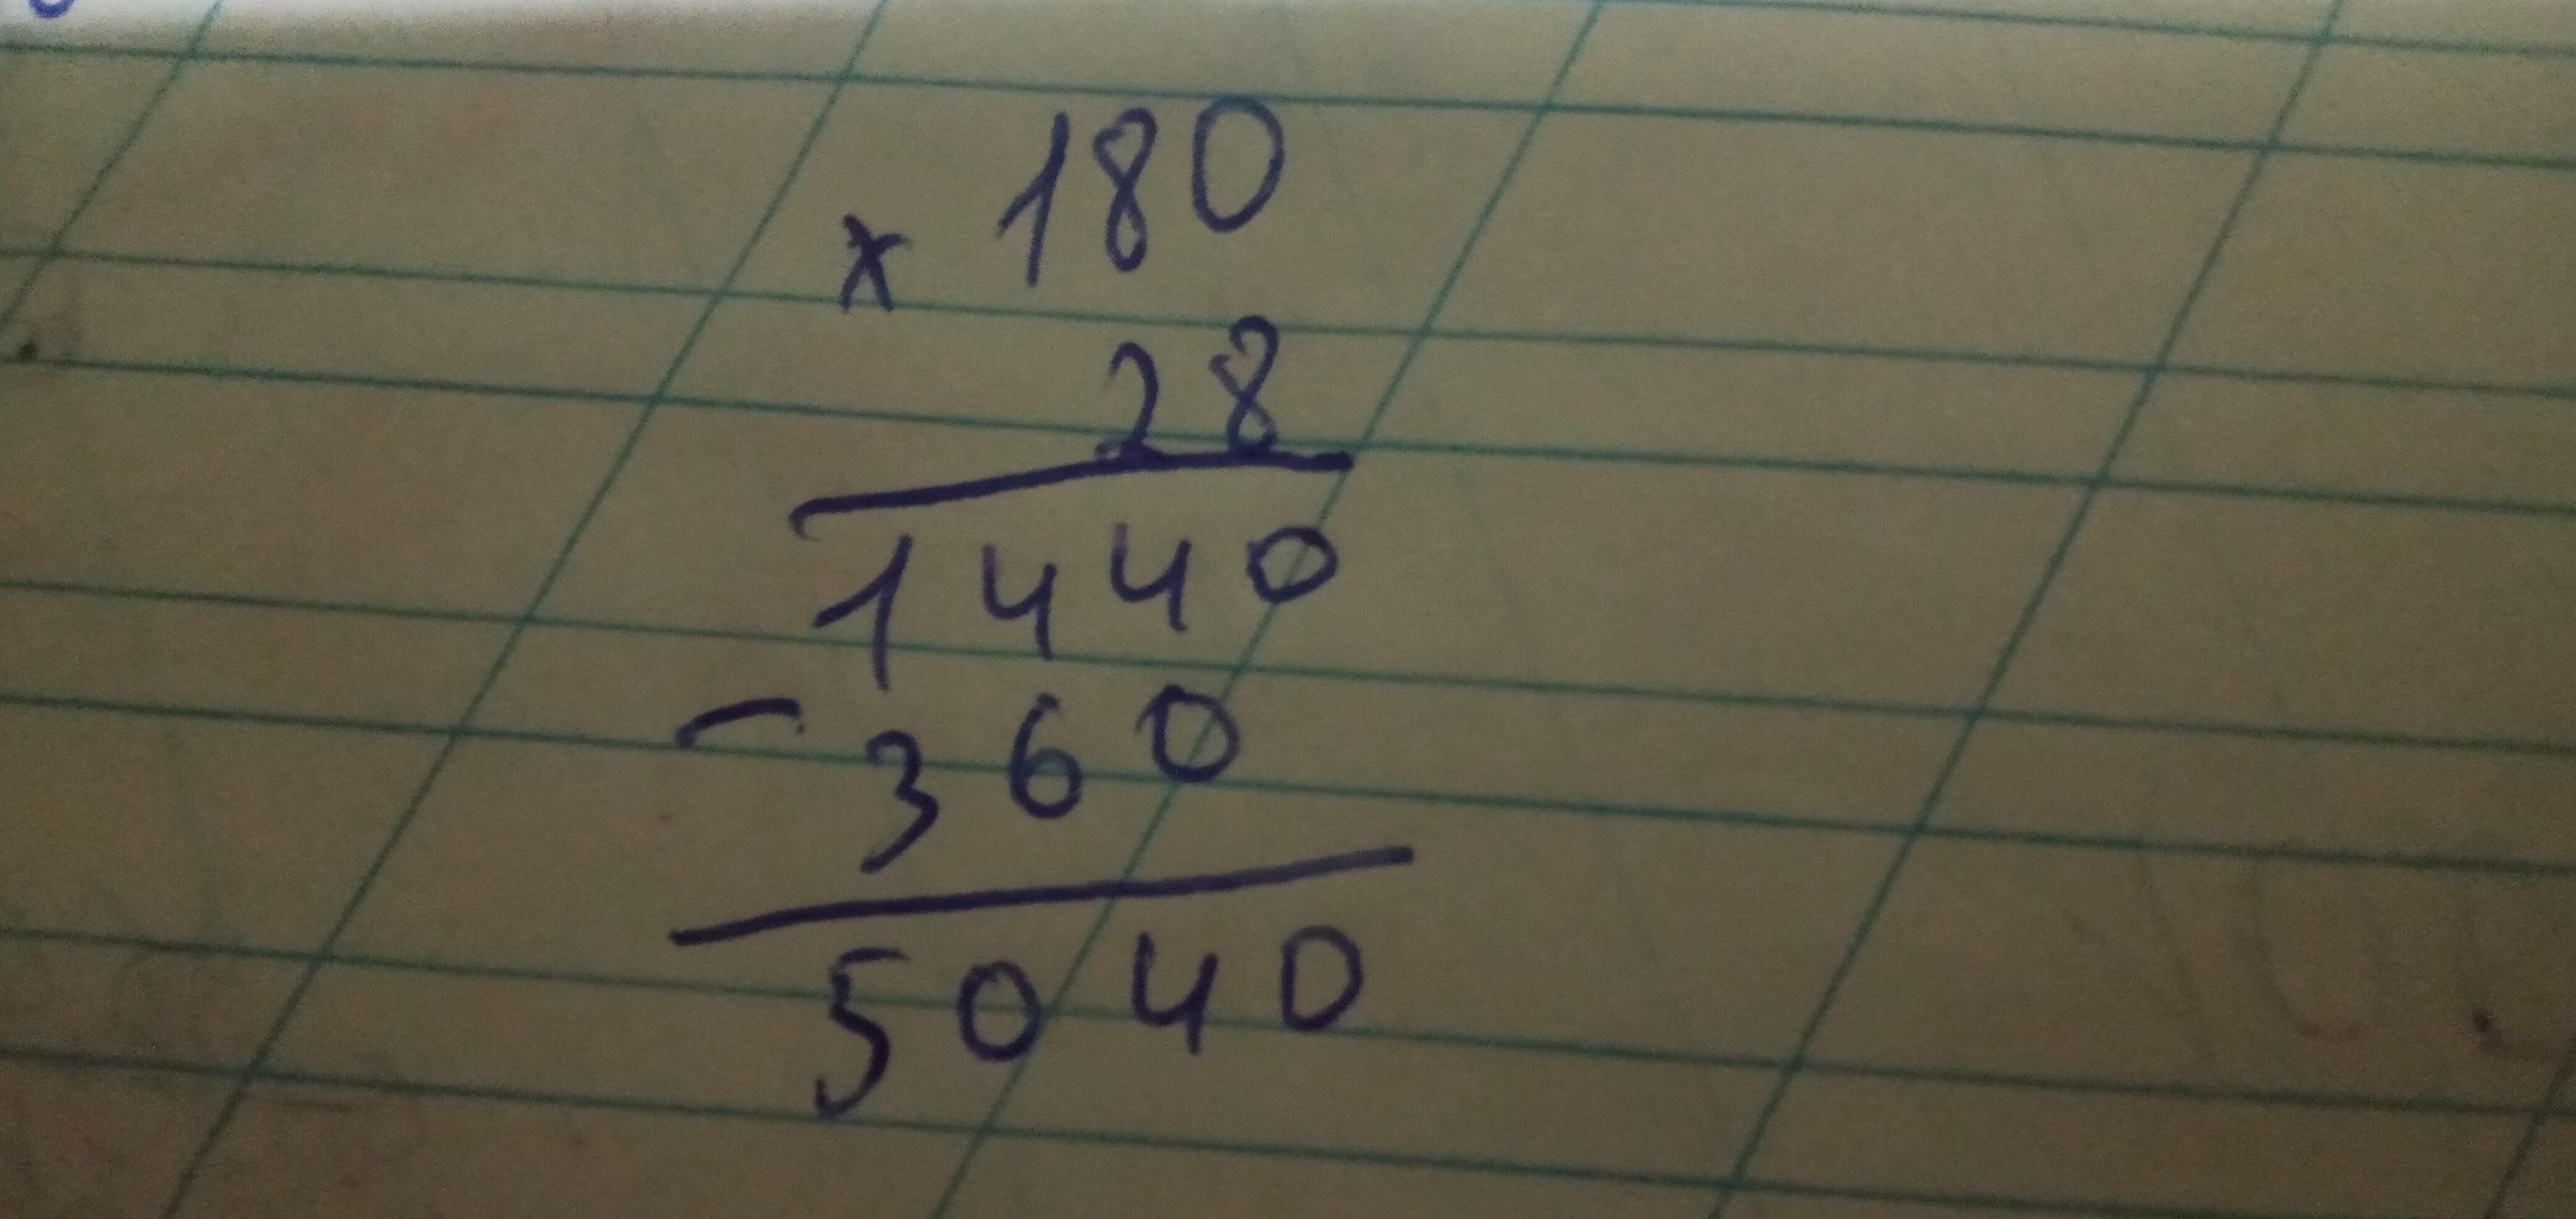 180
×
28
1440
- 360
5040